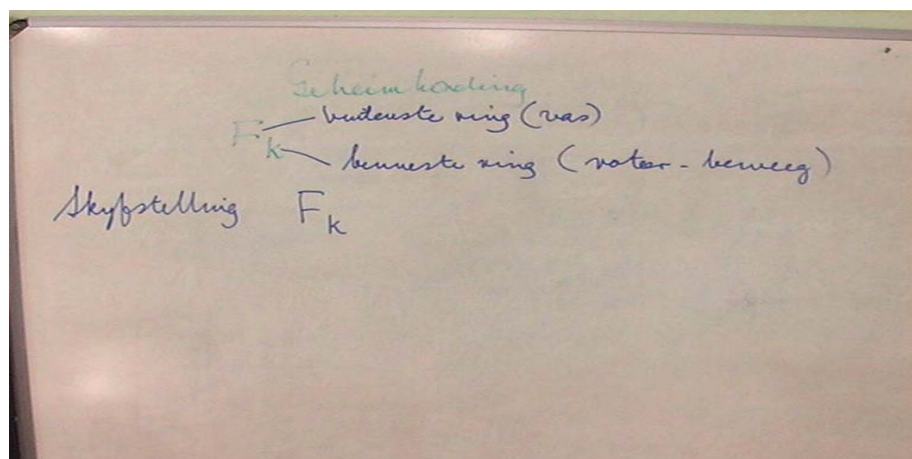 Geheimkoding
F buitenste ring (vas)
k binneste ring (roteer - beweeg)
Skyfstelling F k